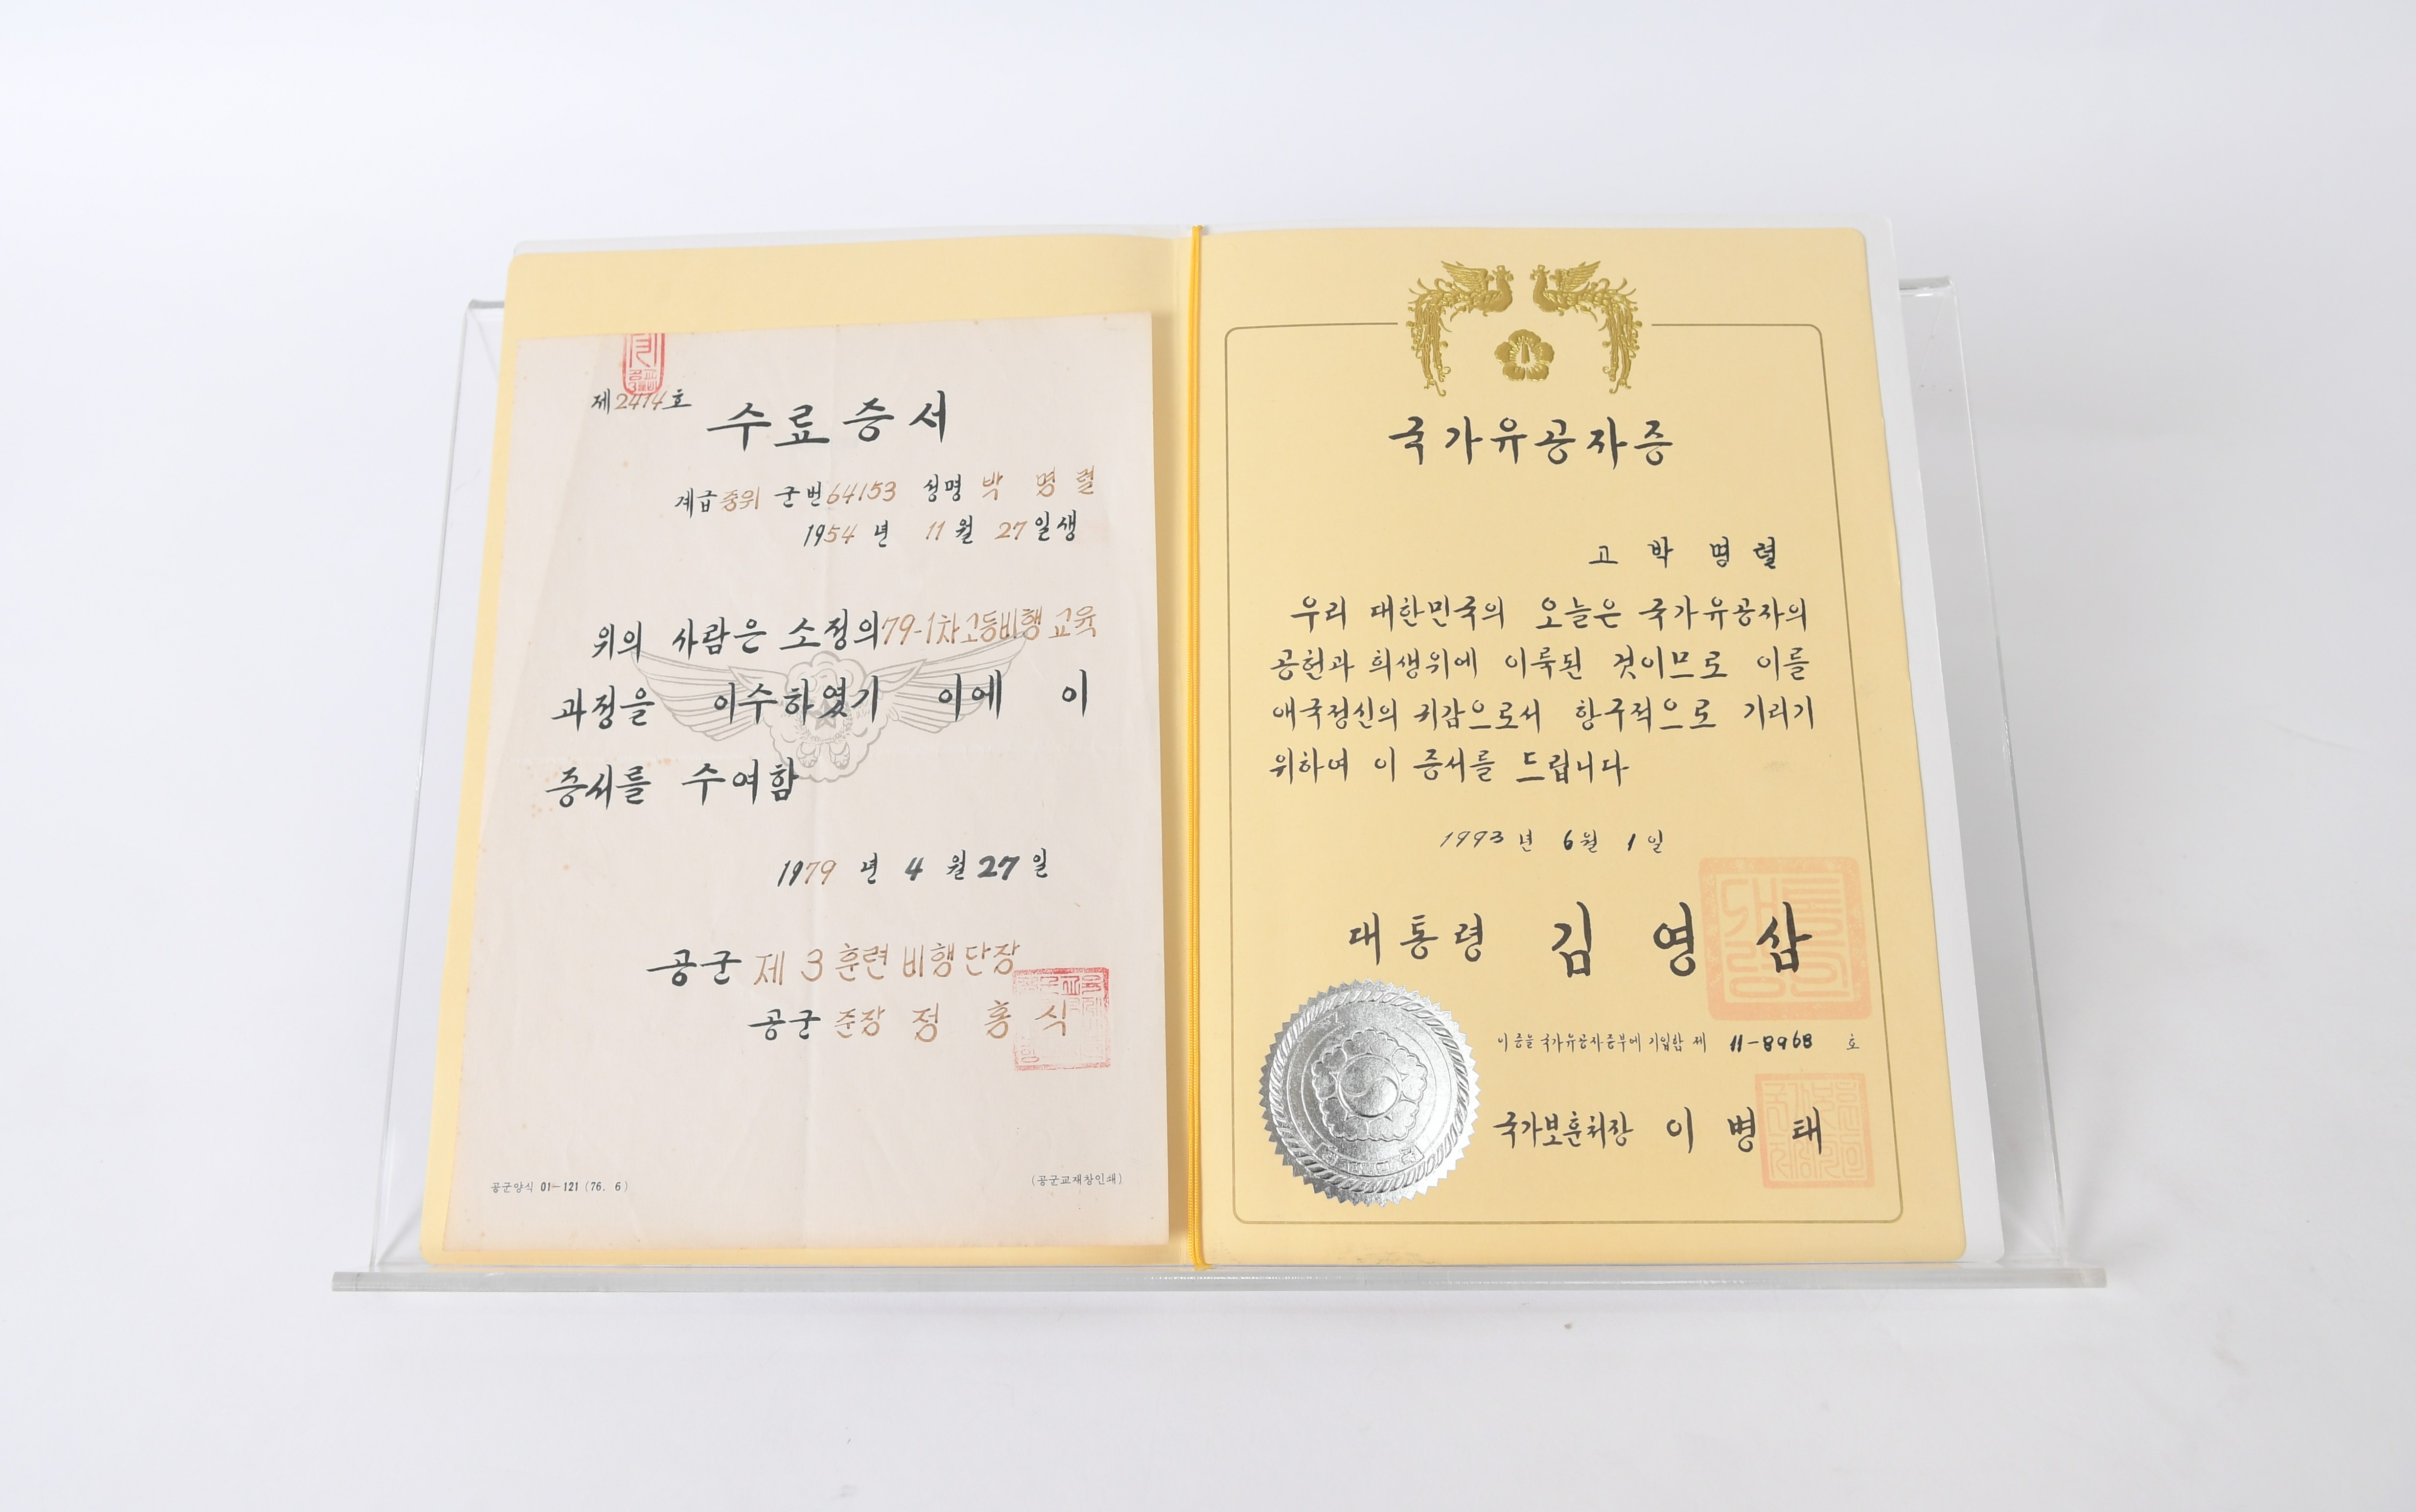 제2474호
수료증서
계급 중위 군번 64153 성명 박 명 렬
1954 년 11 월 27 일생
위의 사람은 소정의 79-1차 고등비행 교육
과정을 이수하였기 이에 이
증서를 수여함
1979 년 4 월 27 일
공군 제 3 훈련 비행단장
공군 준장 정 홍 식
공군양식 01-121 (76. 6)
(공군교재창인쇄)
국가유공자증
고 박 명 렬
우리 대한민국의 오늘은 국가유공자의
공헌과 희생위에 이룩된 것이므로 이를
애국정신의 귀감으로서 항구적으로 기리기
위하여 이 증서를 드립니다
1993 년 6 월 1 일
대통령 김 영 삼
이 증을 국가유공자증부에 기입함 제 11-8968 호
국가보훈처장 이 병 태